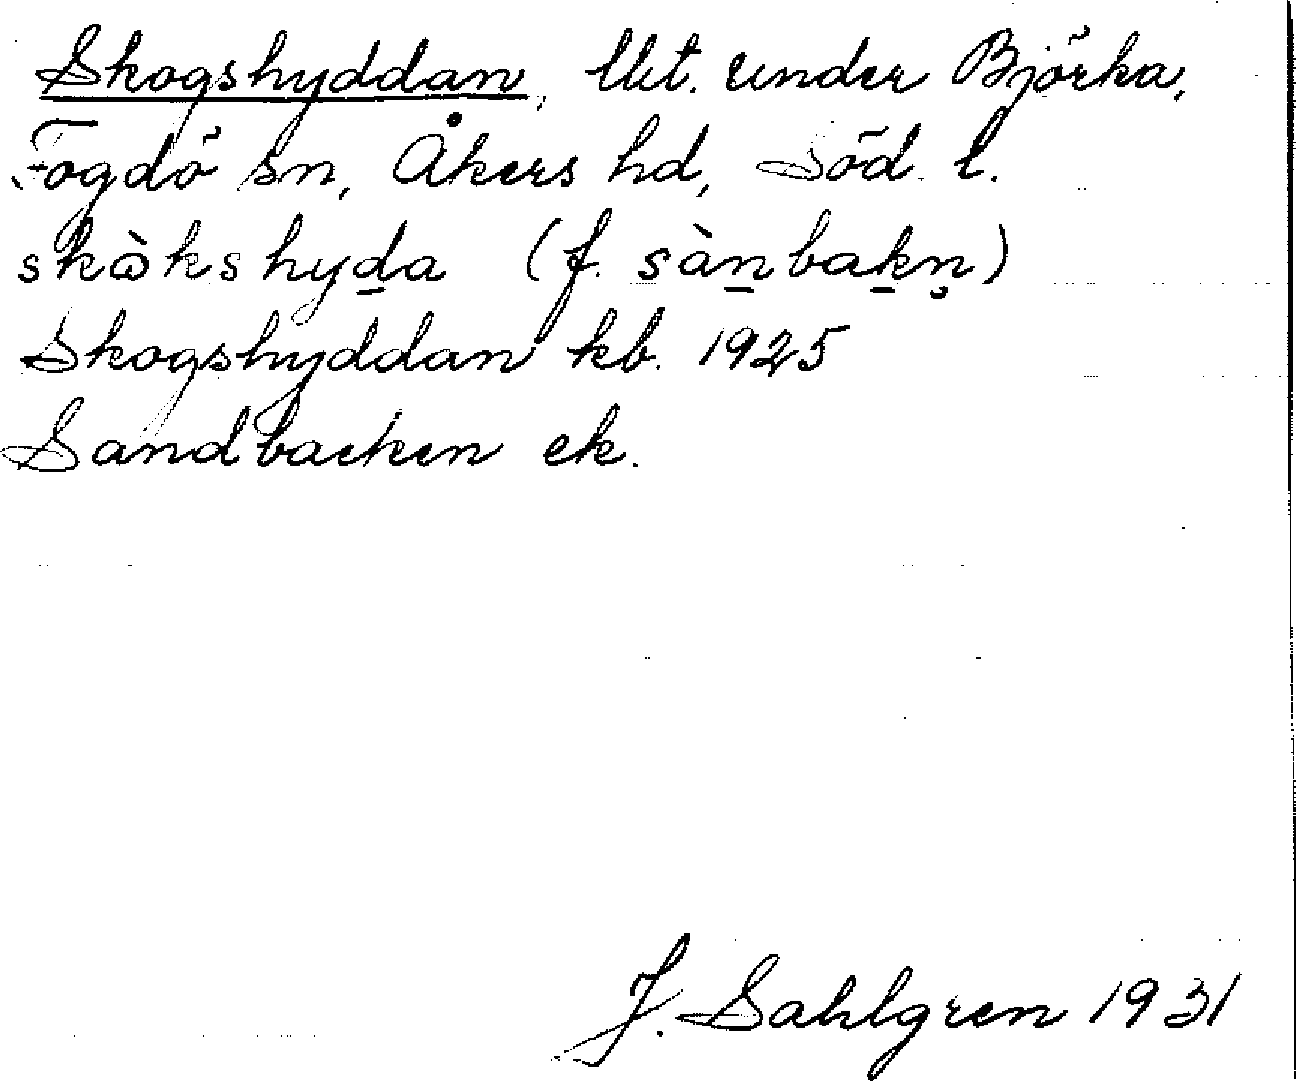 Skogshyddan, lht. under Björka,
Fogdö sn, Åkers hd, Söd. l.
skὼkshyd̲a (f. sàn̲bak̲n̥)
Skogshyddan kb. 1925
Sandbacken ek.
J. Sahlgren 1931